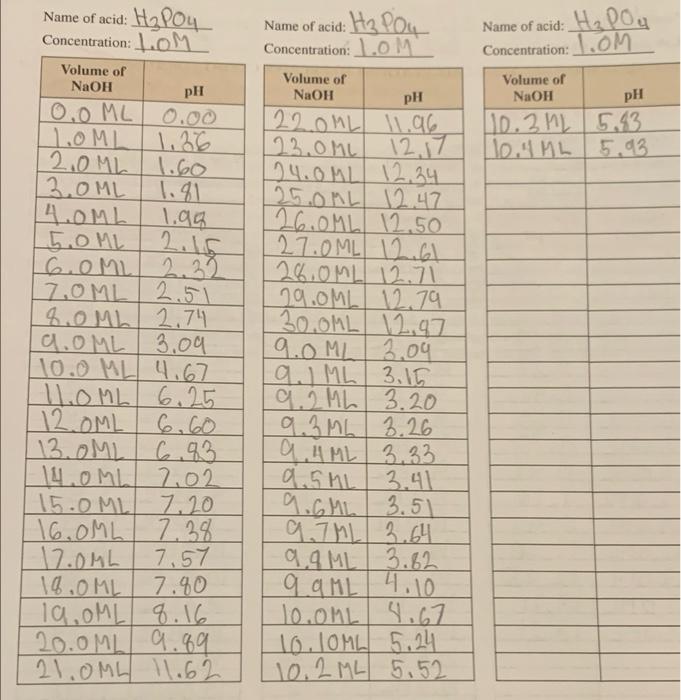 Name of acid: H3PO4
Concentration: 1.0M
Volume of NaOH pH
0.0 ML 0.00
1.0 ML 1.36
2.0 ML 1.60
3.0 ML 1.81
4.0ML 1.98
5.0 ML 2.15
6.0 ML 2.32
7.0 ML 2.51
8.0 ML 2.74
9.0 ML 3.09
10.0 ML 4.67
11.0ML 6.25
12.0ML 6.60
13.0ML 6.83
14.0ML 7.02
15.0 ML 7.20
16.0ML 7.38
17.0ML 7.57
18.0ML 7.80
19.0ML 8.16
20.0ML 9.89
21.0ML 11.62
Name of acid: H3PO4
Concentration: 1.0M
Volume of NaOH pH
22.0ML 11.96
23.0ML 12.17
24.0ML 12.34
25.0ML 12.47
26.0ML 12.50
27.0ML 12.61
28.0ML 12.71
29.0ML 12.79
30.0ML 12.87
9.0 ML 3.09
9.1 ML 3.15
9.2 ML 3.20
9.3 ML 3.26
9.4 ML 3.33
9.5 ML 3.41
9.6 ML 3.51
9.7 ML 3.64
9.8 ML 3.82
9.9 ML 4.10
10.0ML 4.67
10.10ML 5.24
10.2 ML 5.52
Name of acid: H3PO4
Concentration: 1.0M
Volume of NaOH pH
10.3 ML 5.83
10.4 ML 5.93